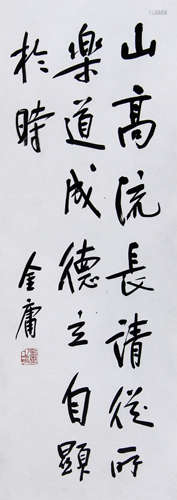 山高流长請從所
樂道成德立自顯
於時
金庸